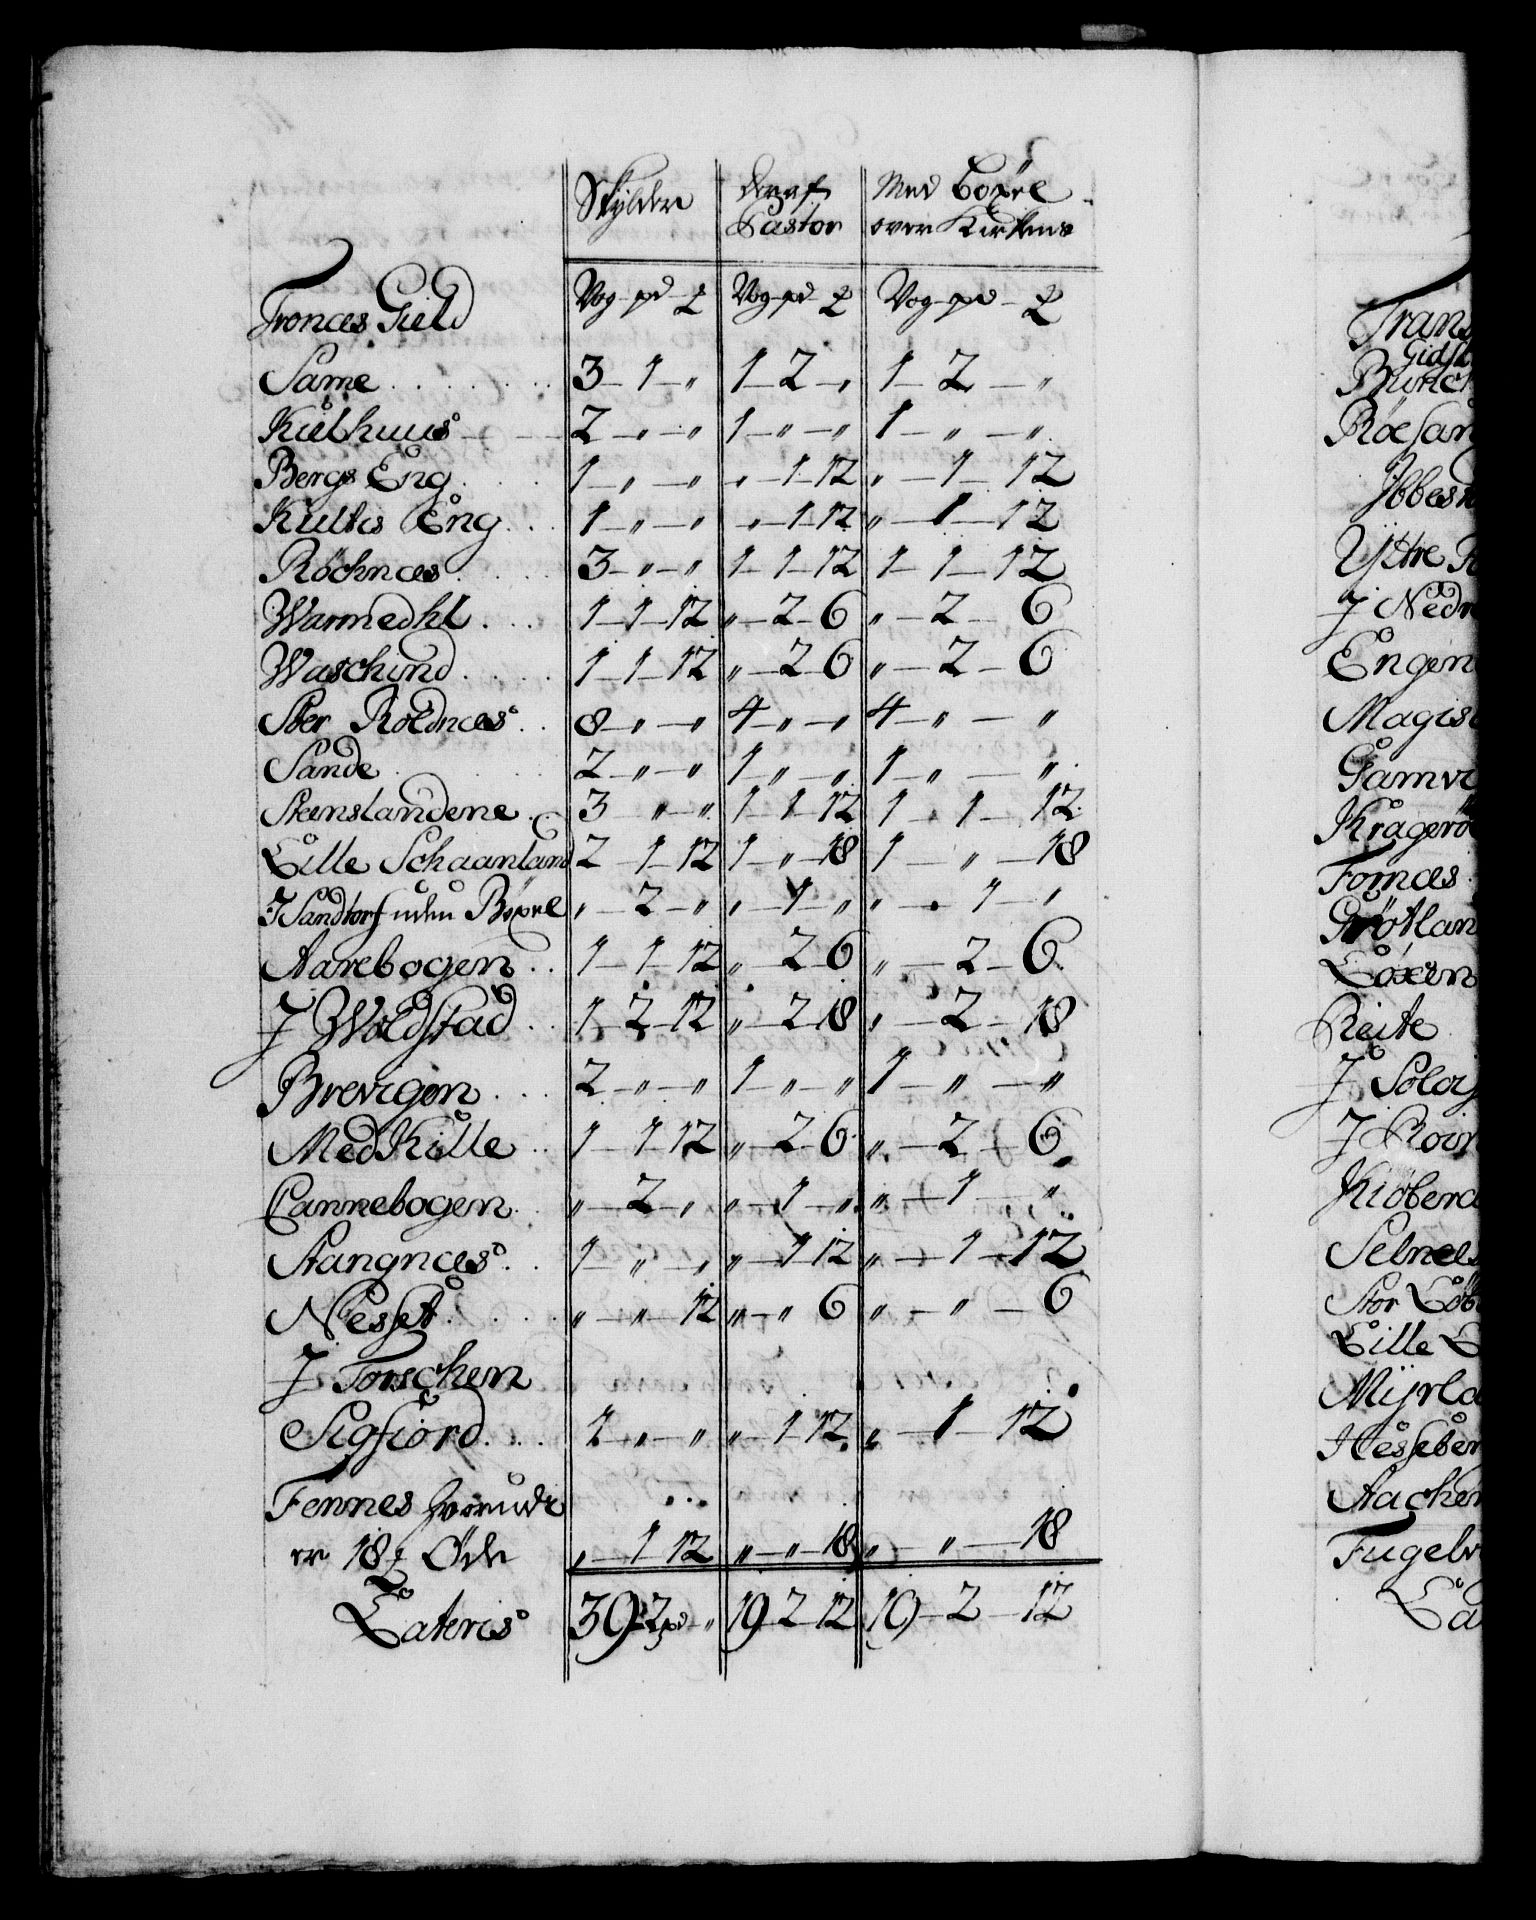 Skylder	deraf	Med Böxel
	Pastor	over Kirkens
Tronæs Gield	Vog - pd - ℔	Vog - pd - ℔	Vog - pd - ℔
Same	3 - 1 - „	1 - 2 - „	1 - 2 - „
Kielhuus	2 - „ - „	1 - „ - „	1 - „ - „
Bergs Eng	1 - „ - „	„ - 1 - 12	„ - 1 - 12
Kultes Eng	1 - „ - „	„ - 1 - 12	„ - 1 - 12
Röchnæs	3 - „ - „	1 - 1 - 12	1 - 1 - 12
Warmedhl	1 - 1 - 12	„ - 2 - 6	„ - 2 - 6
Waschind	1 - 1 - 12	„ - 2 - 6	„ - 2 - 6
Stor Roldnæs	8 - „ - „	4 - „ - „	4 - „ - „
Sande	2 - „ - „	1 - „ - „	1 - „ - „
Steenslandene	3 - „ - „	1 - 1 - 12	1 - 1 - 12
Lille Schaanland	2 - 1 - 12	1 - „ - 18	1 - „ - 18
J Sandtorf uden Böxel	„ - 2 - „	„ - 1 - „	„ - 1 - „
Aarebogen	1 - 1 - 12	„ - 2 - 6	„ - 2 - 6
J Woldstad	1 - 2 - 12	„ - 2 - 18	„ - 2 - 18
Brevigen	2 - „ - „	1 - „ - „	1 - „ - „
Med Kille	1 - 1 - 12	„ - 2 - 6	„ - 2 - 6
Cannebogen	„ - 2 - „	„ - 1 - „	„ - 1 - „
Stangnæs	1 - „ - „	„ - 1 - 12	„ - 1 - 12
Nesset	„ - „ - 12	„ - „ - 6	„ - „ - 6
J Torschen
Sigfiord	1 - „ - „	„ - 1 - 12	„ - 1 - 12
Fennes hvorudi
er 18 ℔ Öde	„ - 1 - 12	„ - „ - 18	„ - „ - 18
Lateris	39 - 2 pd - „	19 - 2 - 12	19 - 2 - 12
Trans
Röesan
Ibbes
Ytre
J Ned
Engen
Magis
Gamv
Kragerö
Fornæs
Grötlan
Reite
J
J
Kiöber
Selnes
Stor
Lille
Myrla
Hesseber
Aacher
Fugel
La